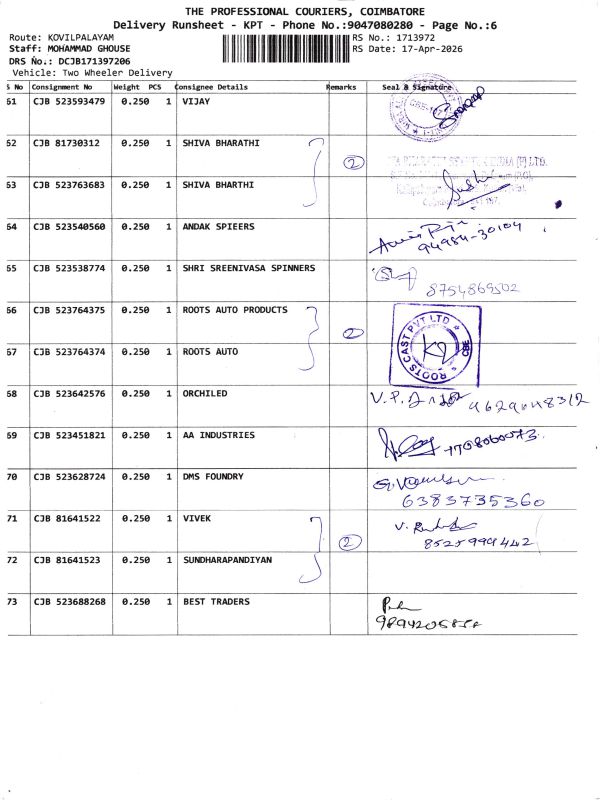 THE PROFESSIONAL COURIERS, COIMBATORE
Delivery Runsheet - KPT - Phone No.:9047080280 - Page No.:6
Route: KOVILPALAYAM
RS No.: 1713972
Staff: MOHAMMAD GHOUSE
RS Date: 17-Apr-2026
DRS No.: DCJB171397206
Vehicle: Two Wheeler Delivery
S No Consignment No Weight PCS Consignee Details Remarks Seal & Signature
61 CJB 523593479 0.250 1 VIJAY
62 CJB 81730312 0.250 1 SHIVA BHARATHI 2
63 CJB 523763683 0.250 1 SHIVA BHARTHI
64 CJB 523540560 0.250 1 ANDAK SPIEERS
94984-30104
65 CJB 523538774 0.250 1 SHRI SREENIVASA SPINNERS
8754869502
66 CJB 523764375 0.250 1 ROOTS AUTO PRODUCTS 2 ROOTS CAST PVT LTD CBE
67 CJB 523764374 0.250 1 ROOTS AUTO
68 CJB 523642576 0.250 1 ORCHILED
69 CJB 523451821 0.250 1 AA INDUSTRIES
70 CJB 523628724 0.250 1 DMS FOUNDRY
6383735360
71 CJB 81641522 0.250 1 VIVEK
2
72 CJB 81641523 0.250 1 SUNDHARAPANDIYAN
73 CJB 523688268 0.250 1 BEST TRADERS